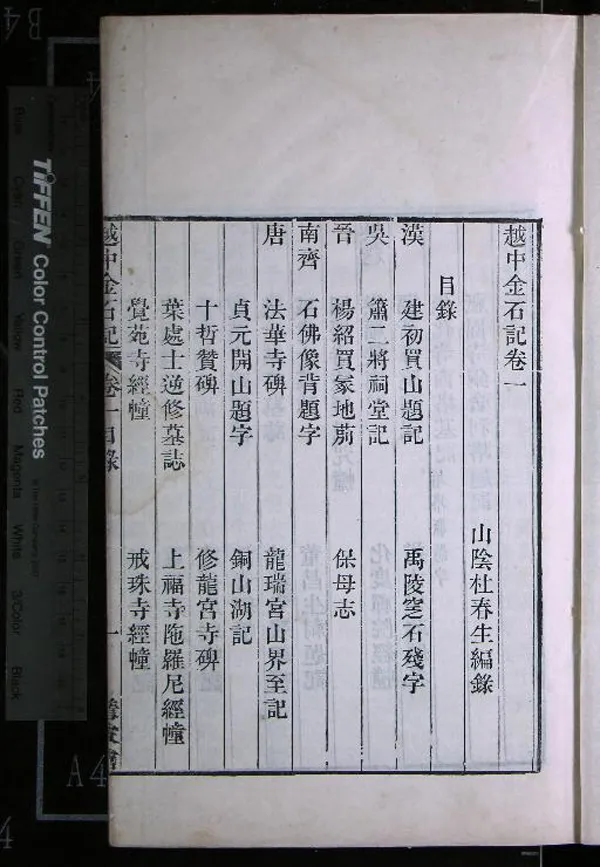 越中金石記卷一
山陰杜春生編錄
目錄
漢 建初買山題記 禹陵窆石殘字
吳 蕭二將祠堂記
晉 楊紹買冢地莂 保母志
南齊 石佛像背題字
唐 法華寺碑 龍瑞宮山界至記
貞元開山題字 銅山湖記
十哲贊碑 修龍宮寺碑
葉處士逆修墓誌 上福寺陁羅尼經幢
覺苑寺經幢 戒珠寺經幢
越中金石記 卷一目錄 一
TIFFEN Color Control Patches
Blue Cyan Green Yellow Red Magenta White 3/Color Black
B4
A4